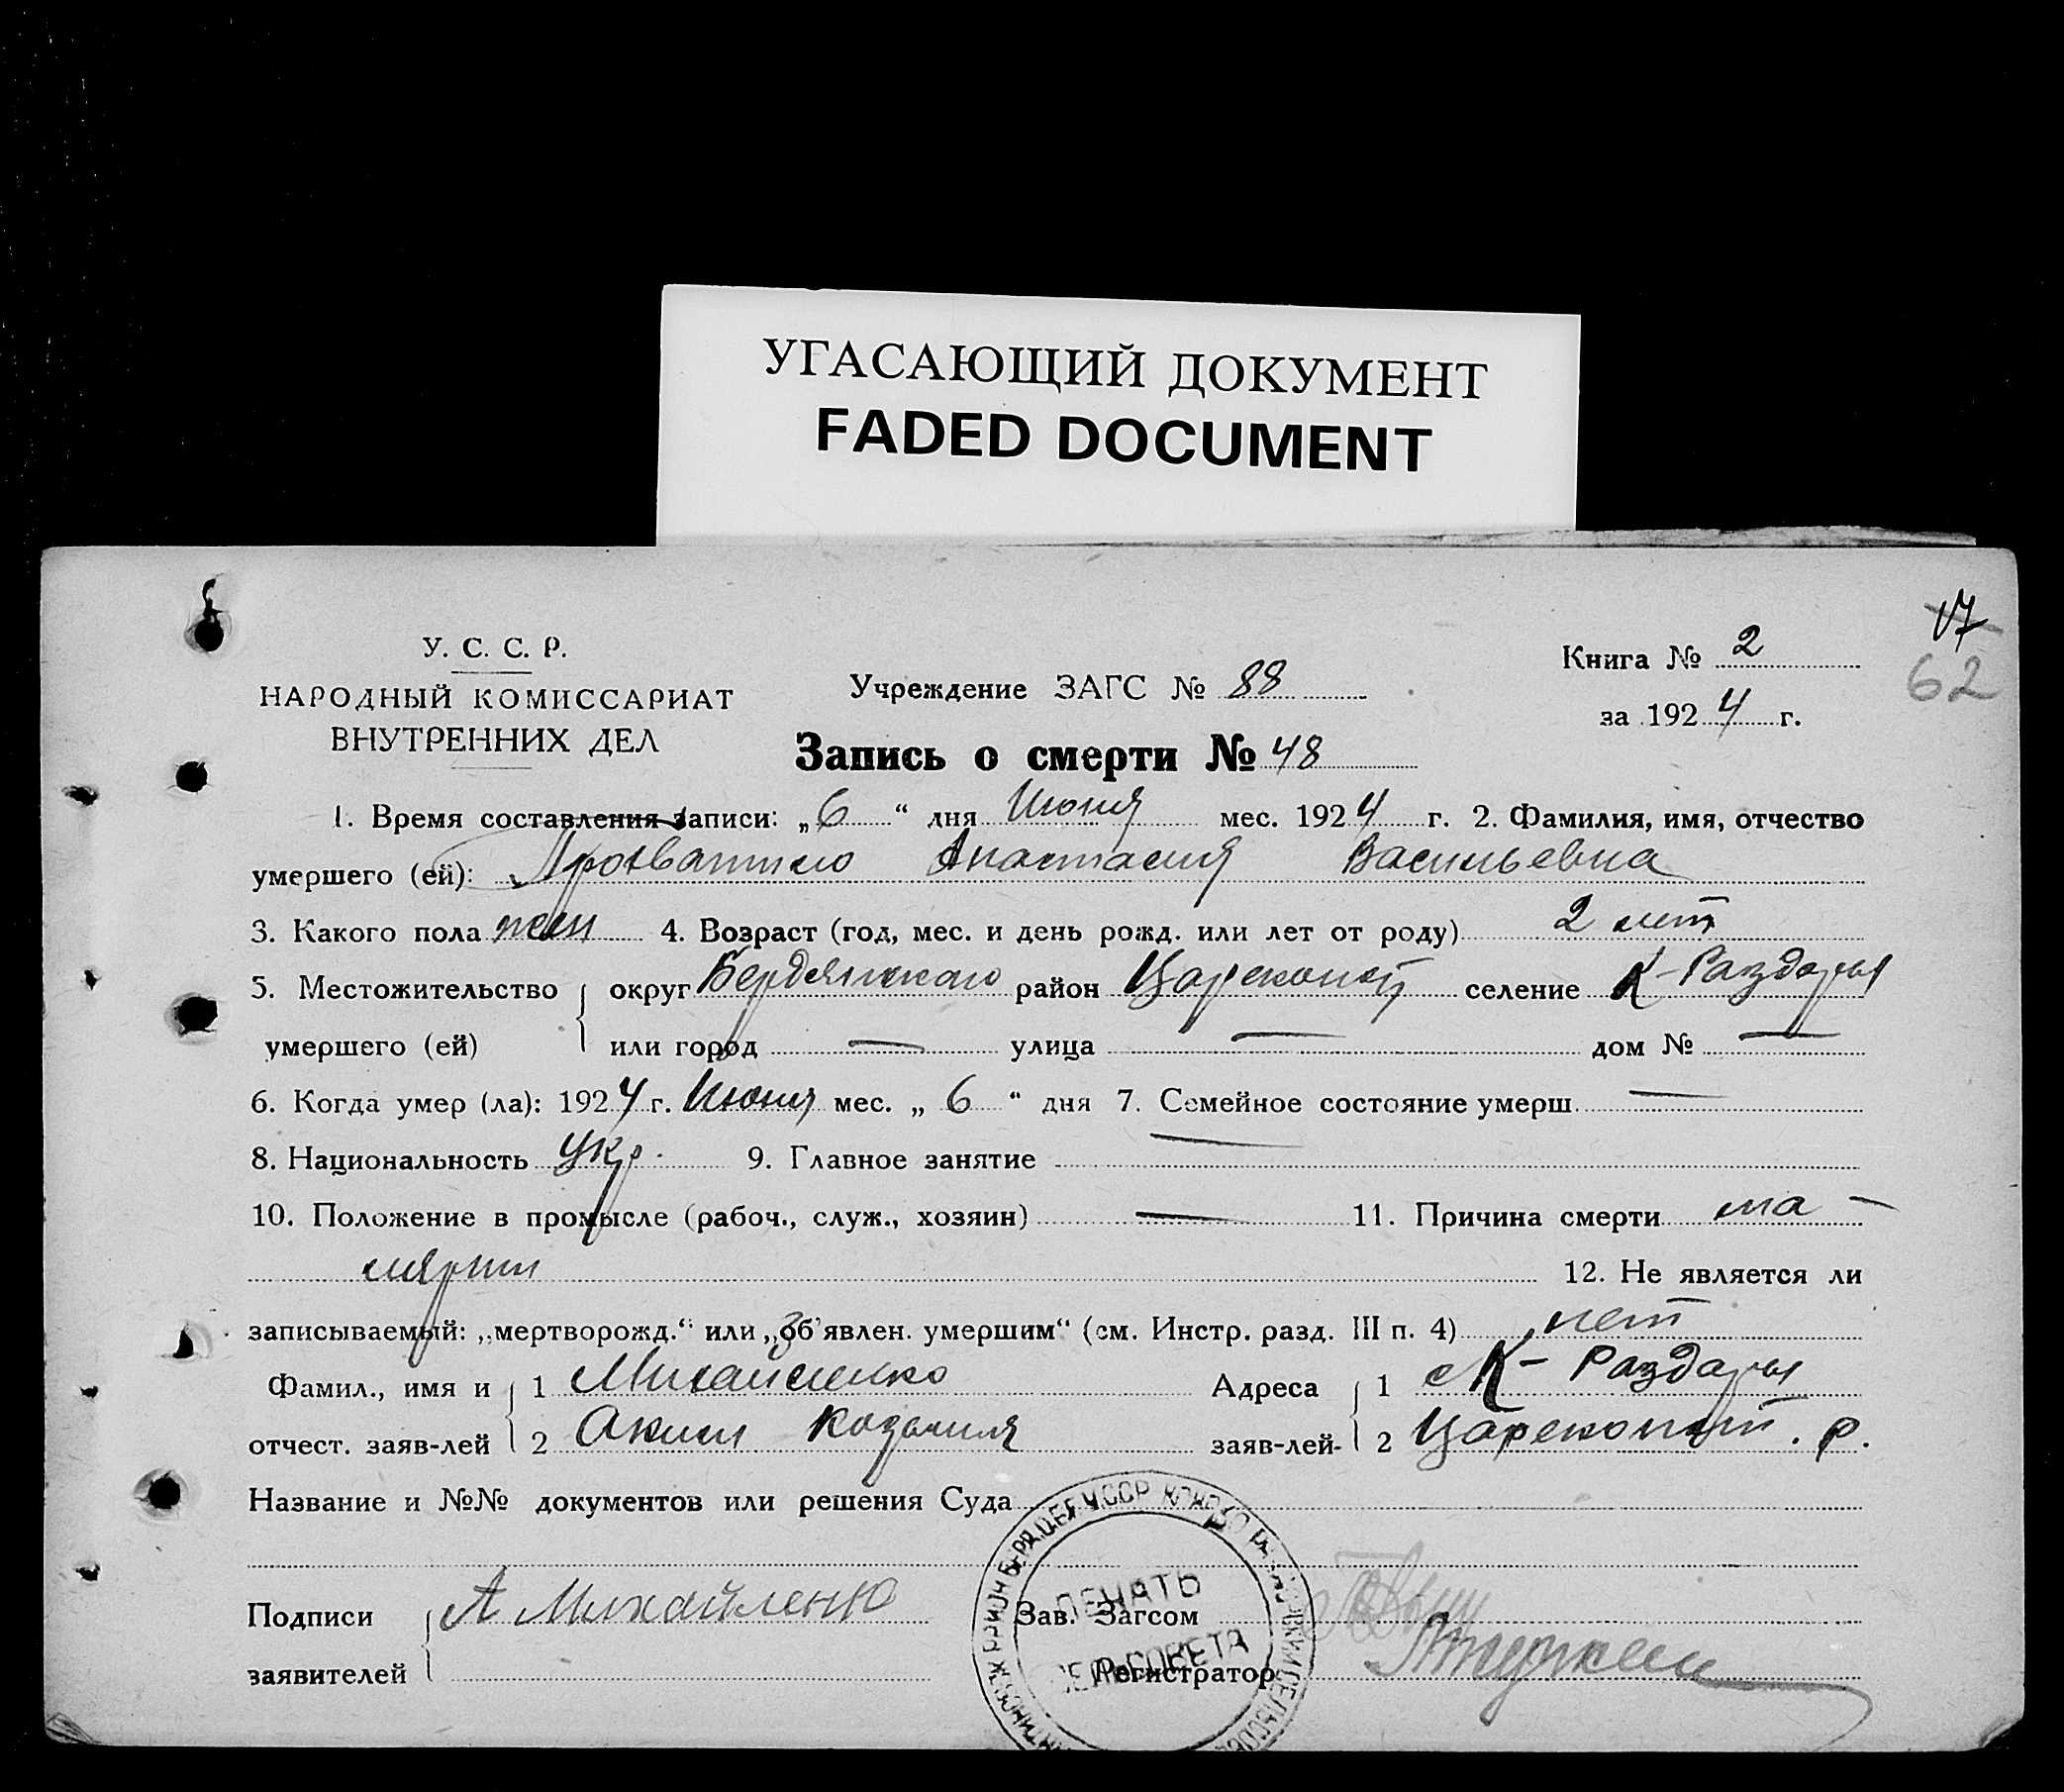 УГАСАЮЩИЙ ДОКУМЕНТ
FADED DOCUMENT
17
62
У. С. С. Р.
НАРОДНЫЙ КОМИССАРИАТ
ВНУТРЕННИХ ДЕЛ
Учреждение ЗАГС № 88
Книга № 2
за 1924 г.
Запись о смерти № 48
1. Время составления записи: „6“ дня Июня мес. 1924 г. 2. Фамилия, имя, отчество
умершего (ей): Анастасия Васильевна
3. Какого пола жен 4. Возраст (год, мес. и день рожд. или лет от роду) 2 лет
5. Местожительство округ Бердянского район селение К-Раздоры
умершего (ей) или город — улица — дом № —
6. Когда умер (ла): 1924 г. Июня мес. „6“ дня 7. Семейное состояние умерш. —
8. Национальность Укр. 9. Главное занятие —
10. Положение в промысле (рабоч., служ., хозяин) — 11. Причина смерти ма-
лярии 12. Не является ли
записываемый: „мертворожд.“ или „об'явлен. умершим“ (см. Инстр. разд. III п. 4) нет
Фамил., имя и 1 Михайленко Адреса 1 К-Раздоры
отчест. заяв-лей 2 Аким заяв-лей- 2 р.
Название и №№ документов или решения Суда
Подписи А Михайленко Зав. Загсом
заявителей Регистратор
ПЕЧАТЬ
СЕЛЬСОВЕТА